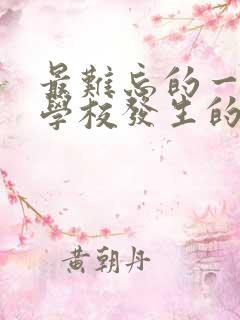 最難忘的一
學校發生的
黃朝丹